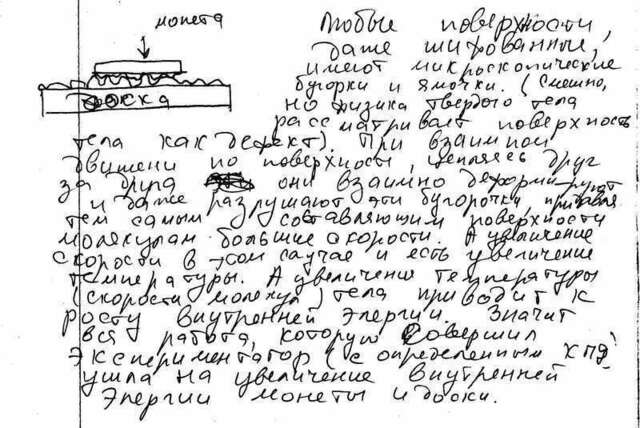 монета
доска
Любые поверхности,
даже шифованные,
имеют микроскопические
бугорки и ямочки. (Смешно,
но физика твердого тела
рассматривает поверхность
тела как дефект). При взаимном
движени по поверхности, цепляясь друг
за друга они взаимно деформируют
и даже разрушают эти бугорочки, придавая
тем самым составляющим поверхности
молекулам большие скорости. А увеличение
скорости в этом случае и есть увеличение
температуры. А увеличение температуры
(скорости молекул) тела приводит к
росту внутренней энергии. Значит
вся работа, которую совершил
экспериментатор (с определенным КПД)
ушла на увеличение внутренней
Энергии монеты и доски.